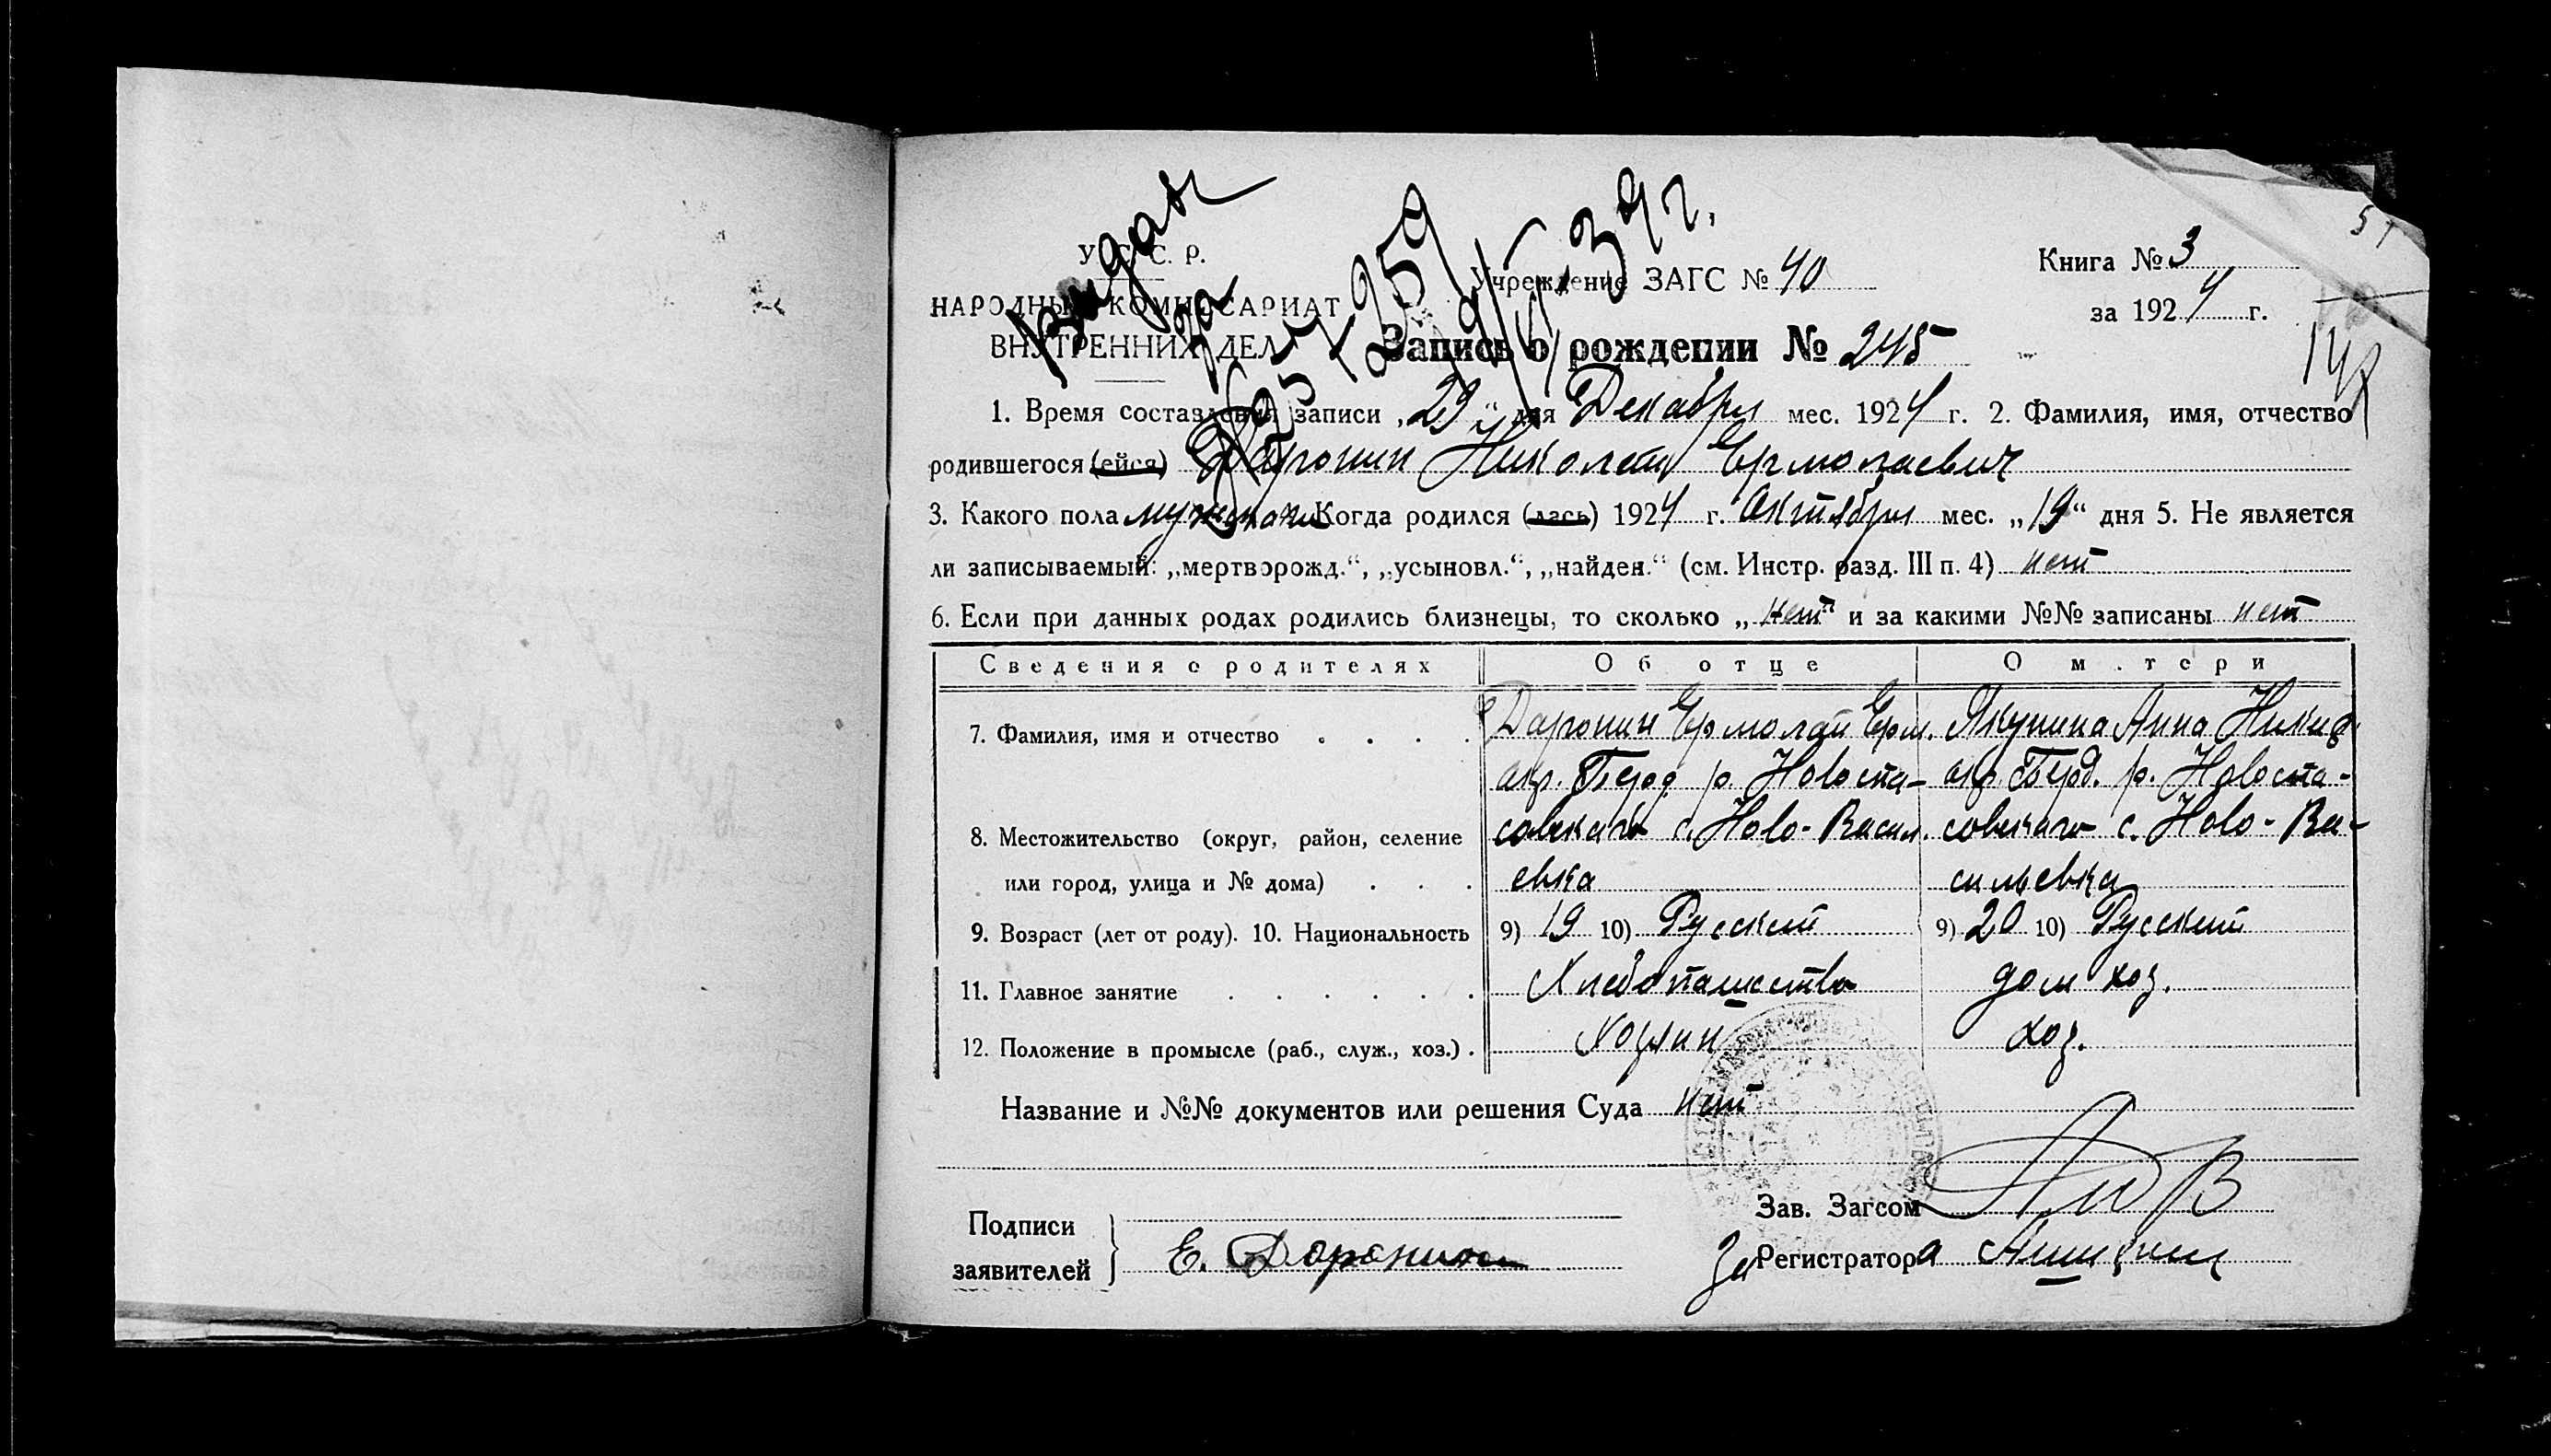 У. С. С. Р.
НАРОДНЫЙ КОМИССАРИАТ
ВНУТРЕННИХ ДЕЛ
Учреждение ЗАГС № 40
Книга № 3
за 1924 г.
Запись о рождении № 245
1. Время составления записи „29“ дня Декабря мес. 1924 г. 2. Фамилия, имя, отчество
родившегося (ейся) Даронин Николай Ермолаевич
3. Какого пола мужская Когда родился (лась) 1924 г. Октября мес. „19“ дня 5. Не является
ли записываемый: „мертворожд.“, „усыновл.“, „найден.“ (см. Инстр. разд. III п. 4) нет
6. Если при данных родах родились близнецы, то сколько „нет“ и за какими №№ записаны нет
Сведения о родителях Об отце О матери
7. Фамилия, имя и отчество . . . . Даронин Ермолай Ерм. Якунина Анна Никиф
окр. Берд. р. Новоспа- окр. Берд. р. Новоспа-
8. Местожительство (округ, район, селение совскаго с. Ново-Васил. совскаго с. Ново-Ва-
или город, улица и № дома) . . . евка сильевка
9. Возраст (лет от роду). 10. Национальность 9) 19 10) Русский 9) 20 10) Русский
11. Главное занятие . . . . . . Хлебопашество дом хоз.
12. Положение в промысле (раб., служ., хоз.) . Хозяин хоз.
Название и №№ документов или решения Суда нет
Подписи
заявителей
Е. Доронин
Зав. Загсом
За Регистратора